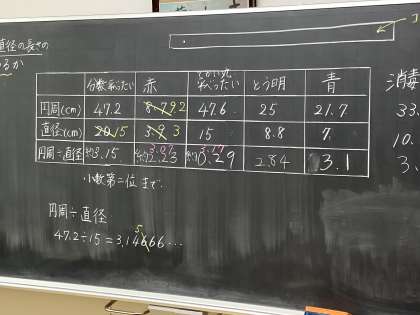 直径の長さの
るか
分数ぴったい 赤 ぴったい とう明 青 消毒
円周(cm) 47.2 8.792 47.6 25 21.7 33.
直径(cm) 20.15 3.93 15 8.8 7. 10.
円周÷直径 約3.15 約2.23 3.07 約0.29 3.17 2.84 3.1 3.
小数第二位まで
円周÷直径
47.2÷15=3.14666… 5